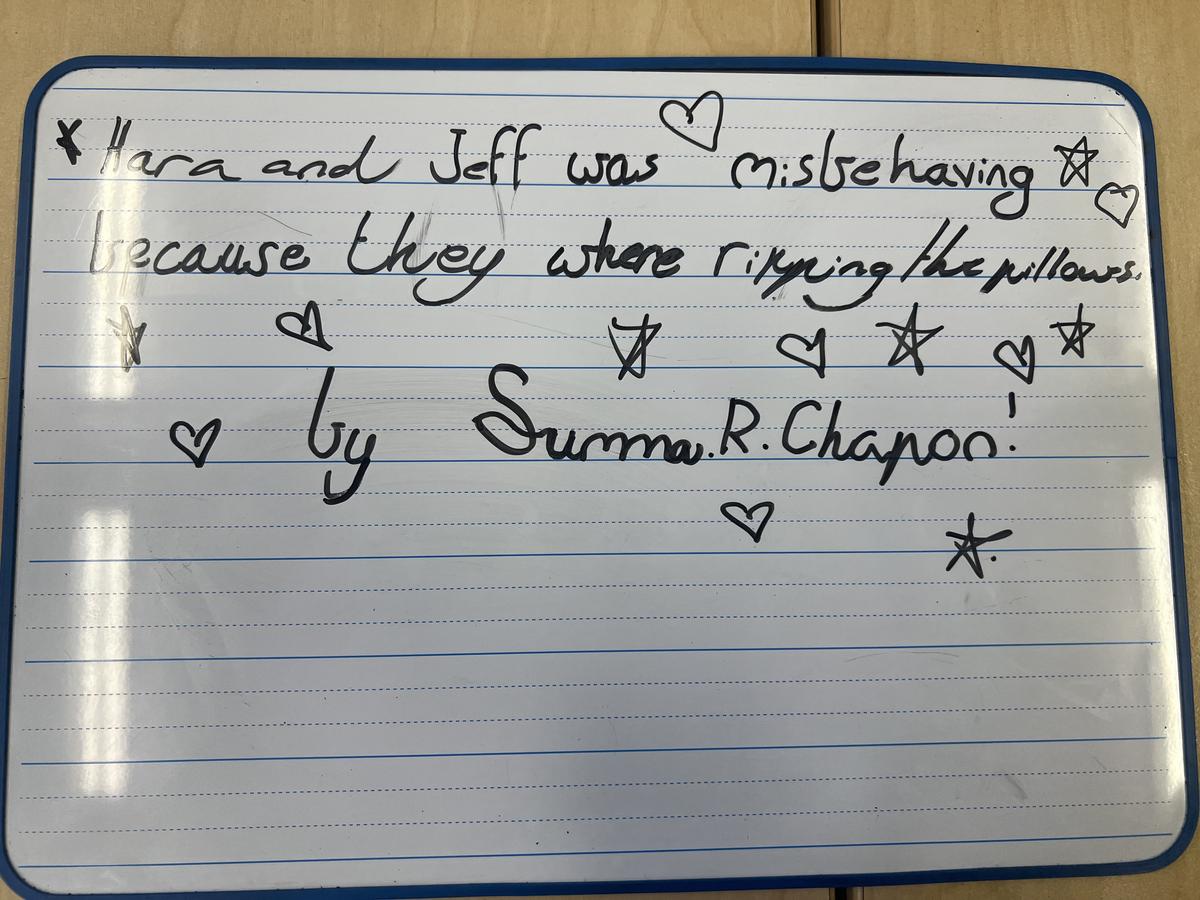 Hara and Jeff was misbehaving
because they where ripping the pillows.
by Summa.R.Chapon!